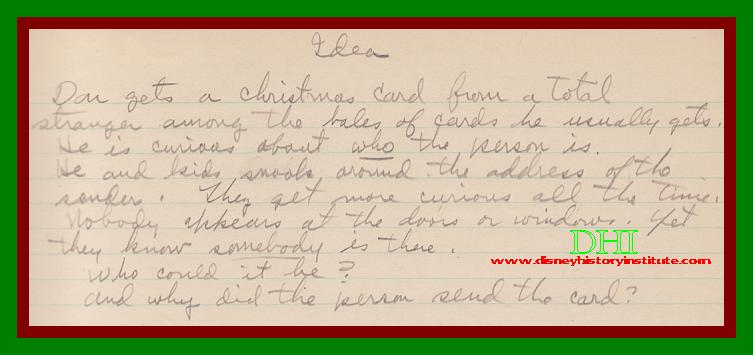 Idea
Don gets a christmas card from a total
stranger among the bales of cards he usually gets.
He is curious about who the person is.
He and kids snook around the address of the
sender. They get more curious all the time.
Nobody appears at the doors or windows. Yet
they know somebody is there.
DHI
www.disneyhistoryinstitute.com
Who could it be?
and why did the person send the card?